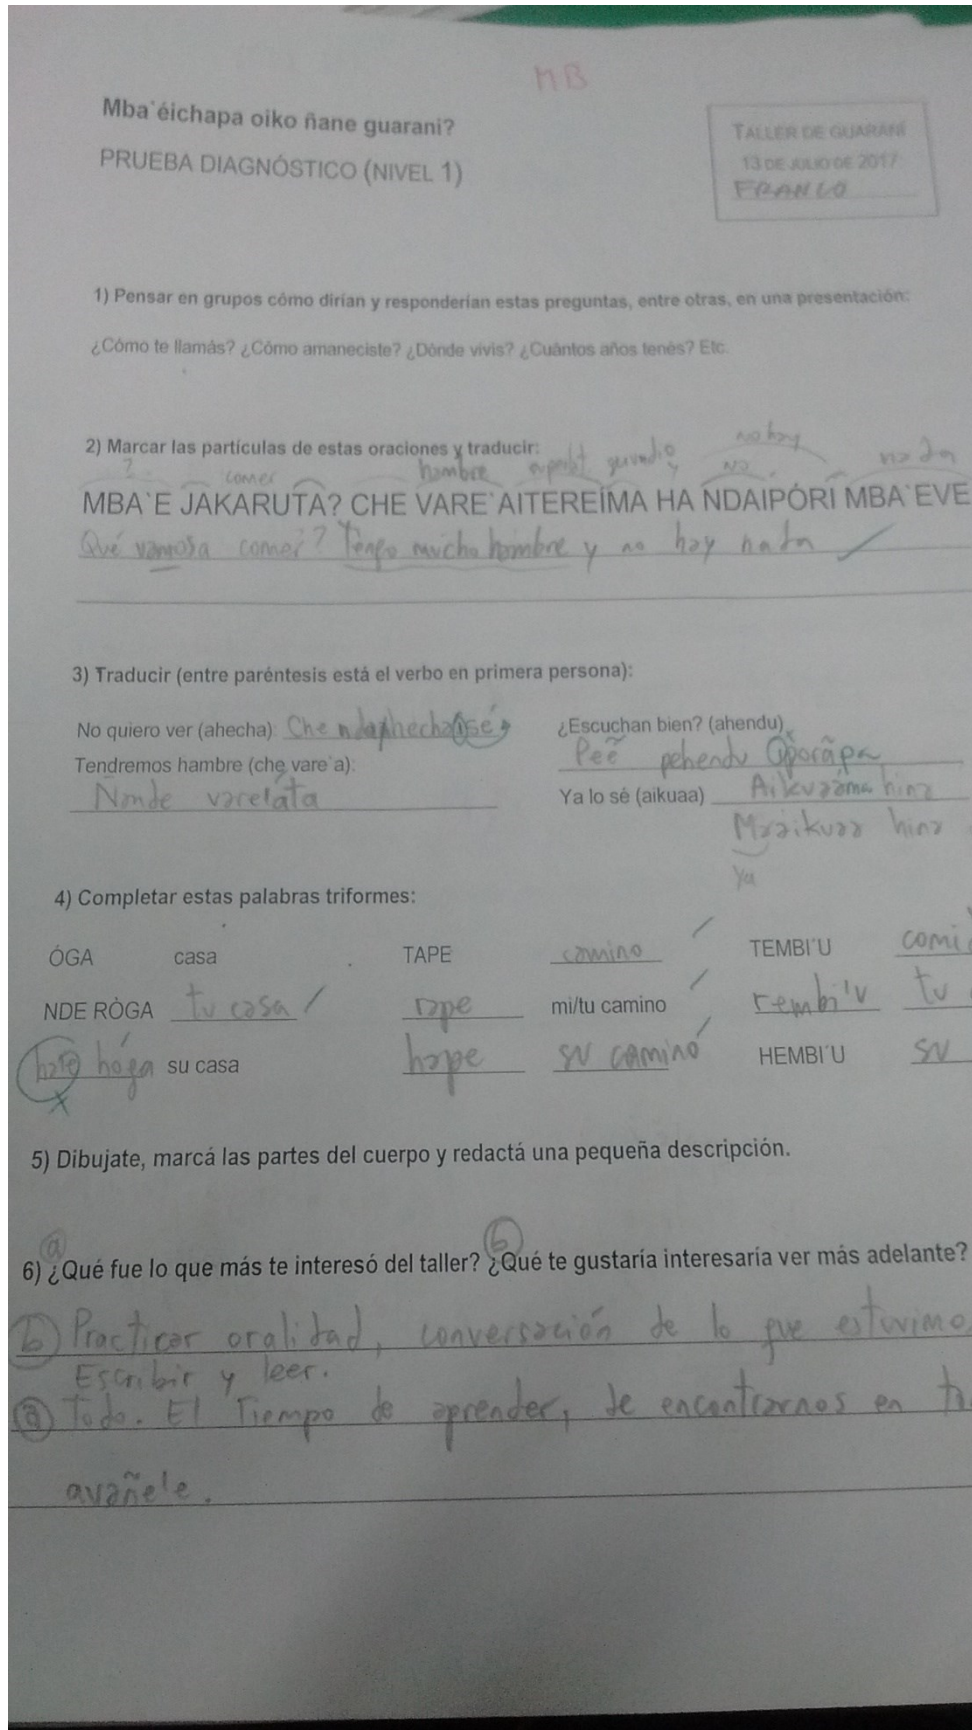 MB
Mba`éichapa oiko ñane guarani?
PRUEBA DIAGNÓSTICO (NIVEL 1)
TALLER DE GUARANÍ
13 DE JULIO DE 2017
FRANCO
1) Pensar en grupos cómo dirían y responderían estas preguntas, entre otras, en una presentación:
¿Cómo te llamás? ¿Cómo amaneciste? ¿Dónde vivís? ¿Cuántos años tenés? Etc.
2) Marcar las partículas de estas oraciones y traducir:
no hay
? comer hambre superlat. gerundio y no nada
MBA`E JAKARUTA? CHE VARE`AITEREÍMA HA NDAIPÓRI MBA`EVE
Qué vamos a comer? Tengo mucho hambre y no hay nada
3) Traducir (entre paréntesis está el verbo en primera persona):
No quiero ver (ahecha): Che
¿Escuchan bien? (ahendu)
Peẽ pehendu iporãpa
Tendremos hambre (che vare`a):
Ñande vare'ata
Ya lo sé (aikuaa) Aikuaáma hína
Maaikuaa hina
Ya
4) Completar estas palabras triformes:
ÓGA casa TAPE camino TEMBI´U comi
NDE RÒGA tu casa rape mi/tu camino rembi'u tu
hóga su casa hape su camino HEMBI´U su
5) Dibujate, marcá las partes del cuerpo y redactá una pequeña descripción.
a b
6) ¿Qué fue lo que más te interesó del taller? ¿Qué te gustaría interesaría ver más adelante?
b) Practicar oralidad, conversación de lo que estuvimo
Escribir y leer.
a) Todo. El Tiempo de aprender, de encontrarnos en
avañe'e.